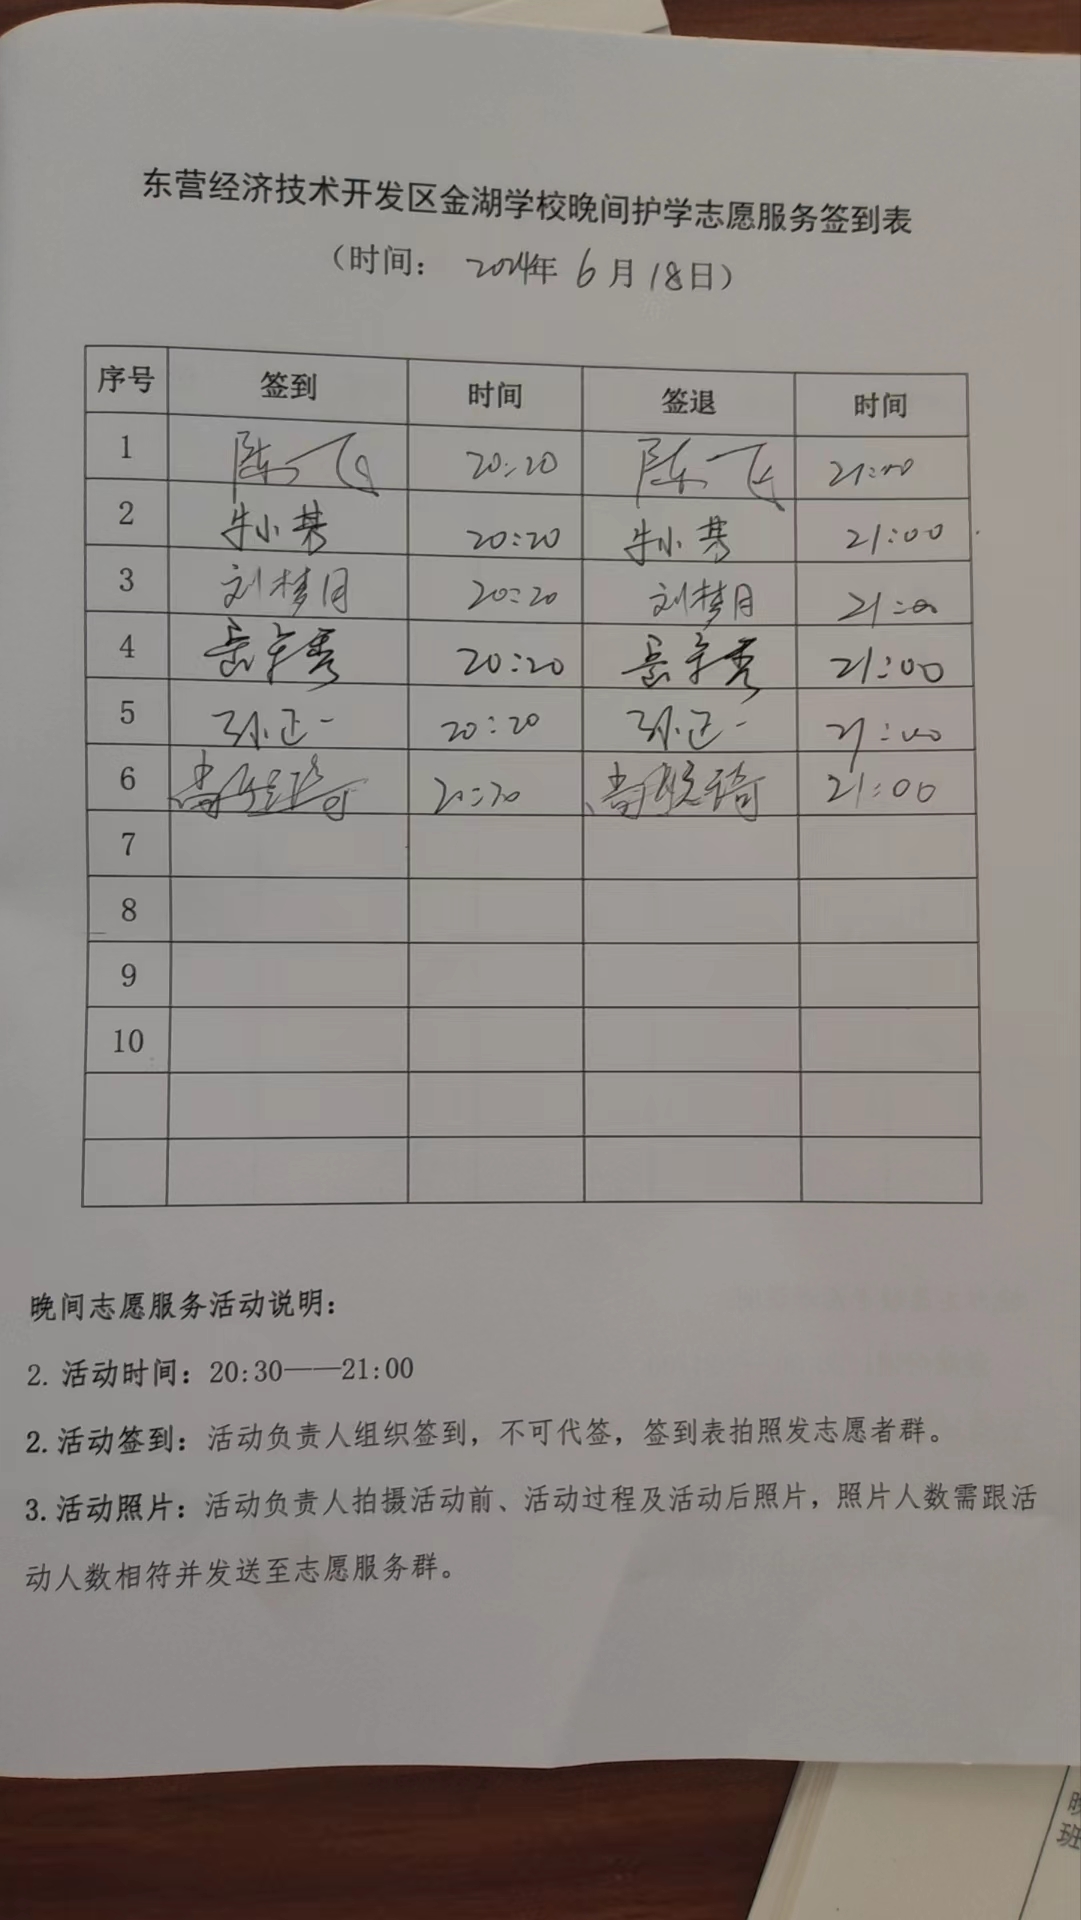 东营经济技术开发区金湖学校晚间护学志愿服务签到表
（时间： 2024年 6月18日）
序号 签到 时间 签退 时间
1 陈飞 20:20 陈飞 21:00
2 牛小 20:20 牛小 21:00
3 刘梦月 20:20 刘梦月 21:00
4 岳秀 20:20 岳秀 21:00
5 孙正一 20:20 孙正一 21:00
6 20:20 21:00
7
8
9
10
晚间志愿服务活动说明：
2. 活动时间：20:30——21:00
2. 活动签到：活动负责人组织签到，不可代签，签到表拍照发志愿者群。
3. 活动照片：活动负责人拍摄活动前、活动过程及活动后照片，照片人数需跟活
动人数相符并发送至志愿服务群。
晚
班